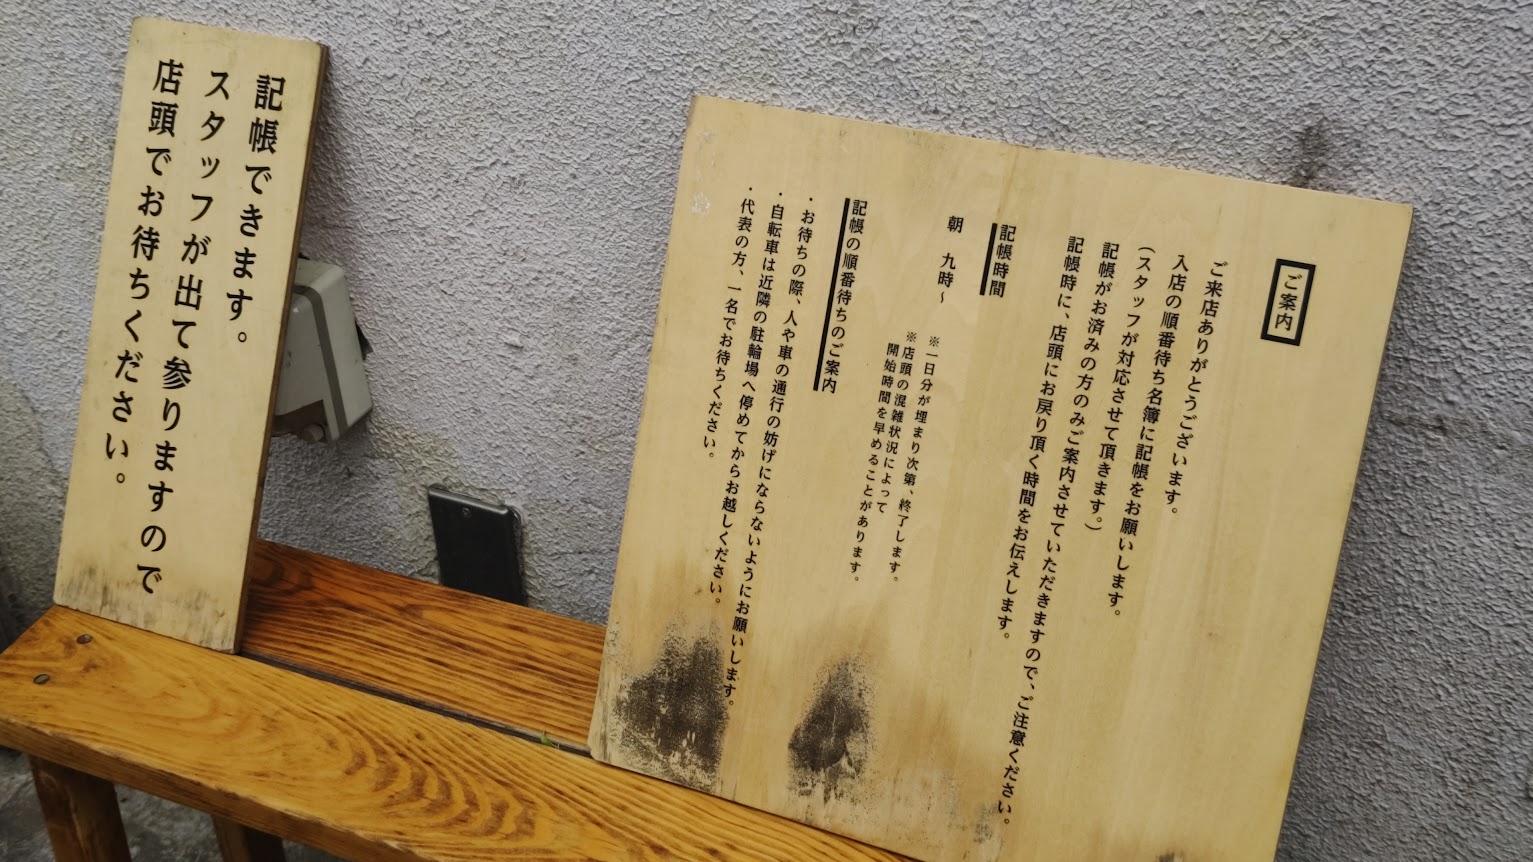 記帳できます。
スタッフが出て参りますので
店頭でお待ちください。
ご案内
ご来店ありがとうございます。
入店の順番待ち名簿に記帳をお願いします。
(スタッフが対応させて頂きます。)
記帳がお済みの方のみご案内させていただきますので、ご注意ください。
記帳時に、店頭にお戻り頂く時間をお伝えします。
記帳時間
朝 九時~
※一日分が埋まり次第、終了します。
※店頭の混雑状況によって
開始時間を早めることがあります。
記帳の順番待ちのご案内
・お待ちの際、人や車の通行の妨げにならないようにお願いします。
・自転車は近隣の駐輪場へ停めてからお越しください。
・代表の方、一名でお待ちください。